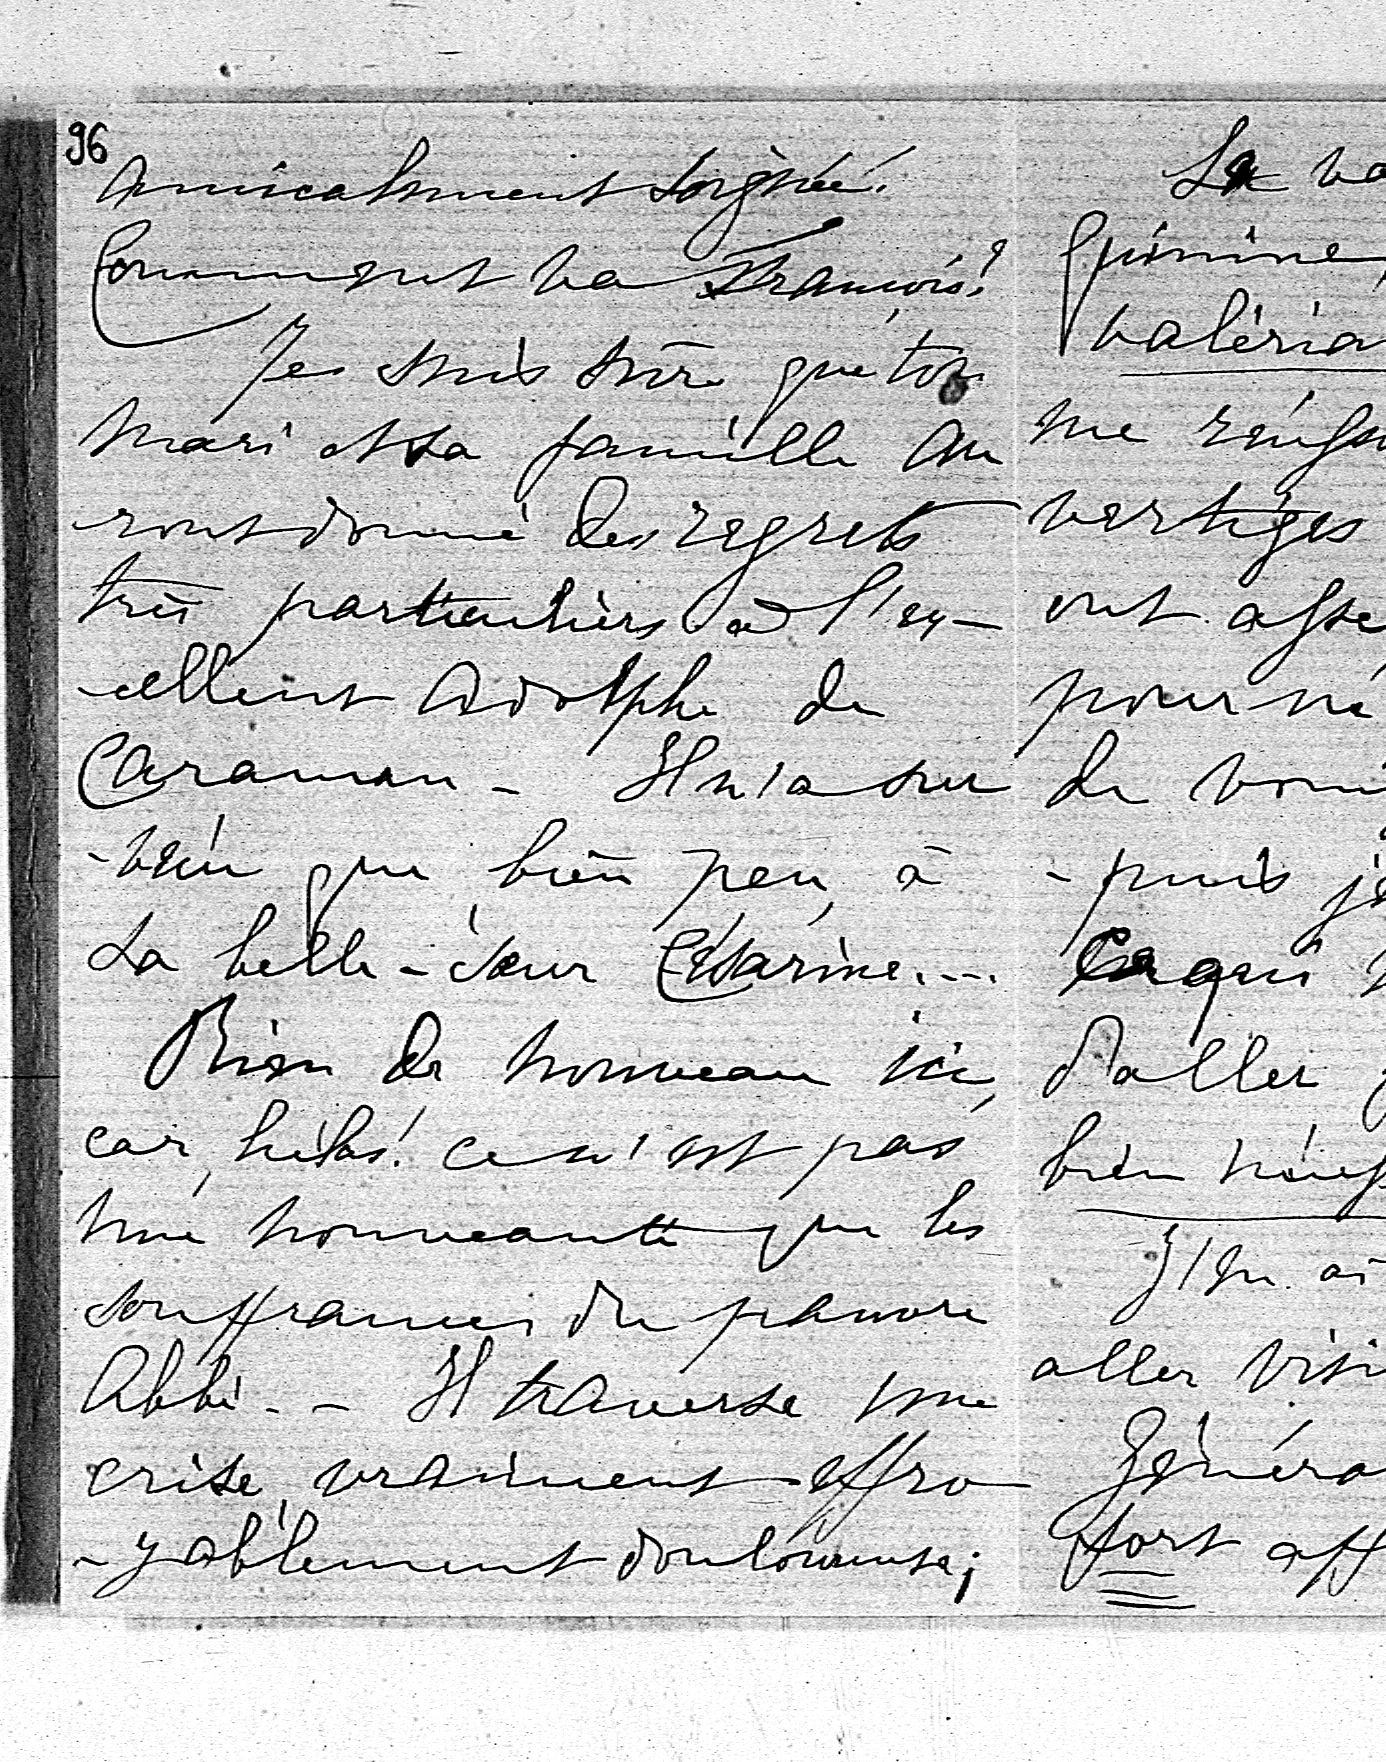 96
amicalement soignée.
Comment va François?
Je suis sûre que ton
mari et sa famille au
ront donné des regrets
très particuliers à l'ex-
-cellent Adolphe de
Caraman - Il n'a sur
-vécu que bien peu à
sa belle-sœur Césarine...
Rien de nouveau ici,
car, hélas! ce n'est pas
une nouveauté que les
souffrances du pauvre
Abbé. - Il traverse une
crise vraiment effro
-yablement douloureuse;
La va
quinine,
valéria
me réuss
vertiges
ont asse
pour ne
de vom
-puis je
Ce qui
d'aller
bien
J'en ai
aller visi
Généra
fort aff